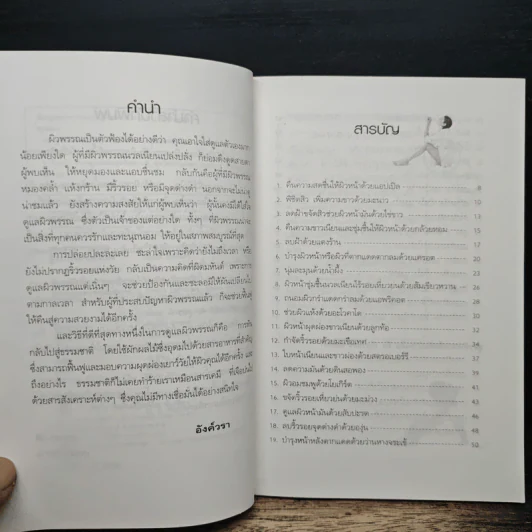 คำนำ
ผิวพรรณเป็นตัวฟ้องได้อย่างดีว่า คุณเอาใจใส่ดูแลตัวเองมาก
น้อยเพียงใด ผู้ที่มีผิวพรรณนวลเนียนเปล่งปลั่ง ก็ย่อมดึงดูดสายตา
ผู้พบเห็น ให้หยุดมองและแอบชื่นชม กลับกันคือผู้ที่มีผิวพรรณ
หมองคล้ำ แห้งกร้าน มีริ้วรอย หรือมีจุดด่างดำ นอกจากจะไม่
น่าชมแล้ว ยังสร้างความสงสัยให้แก่ผู้พบเห็นว่า ผู้นั้นคงมิได้
ดูแลผิวพรรณ ซึ่งตัวเป็นเจ้าของแต่อย่างใด ทั้งๆ ที่ผิวพรรณ
เป็นสิ่งที่ทุกคนควรรักและทะนุถนอม ให้อยู่ในสภาพสมบูรณ์ที่สุด
การปล่อยปละละเลย ชะล่าใจเพราะคิดว่ายังไม่ถึงเวลา หรือ
ยังไม่ปรากฏริ้วรอยแห่งวัย กลับเป็นความคิดที่ผิดมหันต์ เพราะการ
ดูแลผิวพรรณแต่เนิ่นๆ จะช่วยป้องกันและชะลอมิให้ผิวเปลี่ยน
ตามกาลเวลา สำหรับผู้ที่ประสบปัญหาผิวพรรณแล้ว ก็จะช่วย
ให้คืนสู่ความสวยงามได้อีกครั้ง
และวิธีที่ดีที่สุดทางหนึ่งในการดูแลผิวพรรณก็คือ การหัน
กลับไปสู่ธรรมชาติ โดยใช้ผักผลไม้ซึ่งอุดมไปด้วยสารอาหาร
ซึ่งสามารถฟื้นฟูและมอบความผุดผ่องเยาว์วัยให้ผิวคุณได้อีกครั้ง และ
ถึงอย่างไร ธรรมชาติก็ไม่เคยทำร้ายเราเหมือนสารเคมี
ด้วยสารสังเคราะห์ต่างๆ ซึ่งคุณไม่มีทางเชื่อมั่นได้อย่างสนิทใจ
อังค์วรา
สารบัญ
1. คืนความสดชื่นให้ผิวหน้าด้วยแอปเปิล 8
2. พิชิตสิว เพิ่มความขาวด้วยมะนาว 10
3. ลดฝ้าขจัดสิวช่วยผิวหน้ามันด้วยใชขาว
4. คืนความขาวเนียนและชุ่มชื้นให้ผิวหน้าด้วยกล้วยหอม
5. ลบฝ้าด้วยแตงร้าน
6. บำรุงผิวหน้าหรือผิวที่ตากแดดตากลมด้วยแครอต
7. นุ่มละมุนด้วยน้ำผึ้ง
8. ผิวหน้าชุ่มชื้นนวลเนียนไร้รอยเหี่ยวย่นด้วยส้มเขียวหวาน
9. ถนอมผิวกร้านแดดกร้านลมด้วยแอพริคอต
10. ช่วยผิวแห้งด้วยอะโวคาโด
11. ผิวหน้าผุดผ่องขาวเนียนด้วยลูกท้อ
12. กำจัดริ้วรอยด้วยมะเขือเทศ 34
13. ใบหน้าเนียนและขาวผ่องด้วยสตรอเบอร์รี 36
14. ลดความมันด้วยดินสอพอง 38
15. ผิวอมชมพูด้วยโยเกิร์ต 40
16. ขจัดริ้วรอยเหี่ยวย่นด้วยมะม่วง 43
17. ดูแลผิวหน้ามันด้วยสับปะรด 46
18. ลบริ้วรอยจุดด่างดำด้วยองุ่น 48
19. บำรุงหน้าหลังตากแดดด้วยว่านหางจระเข้ 50